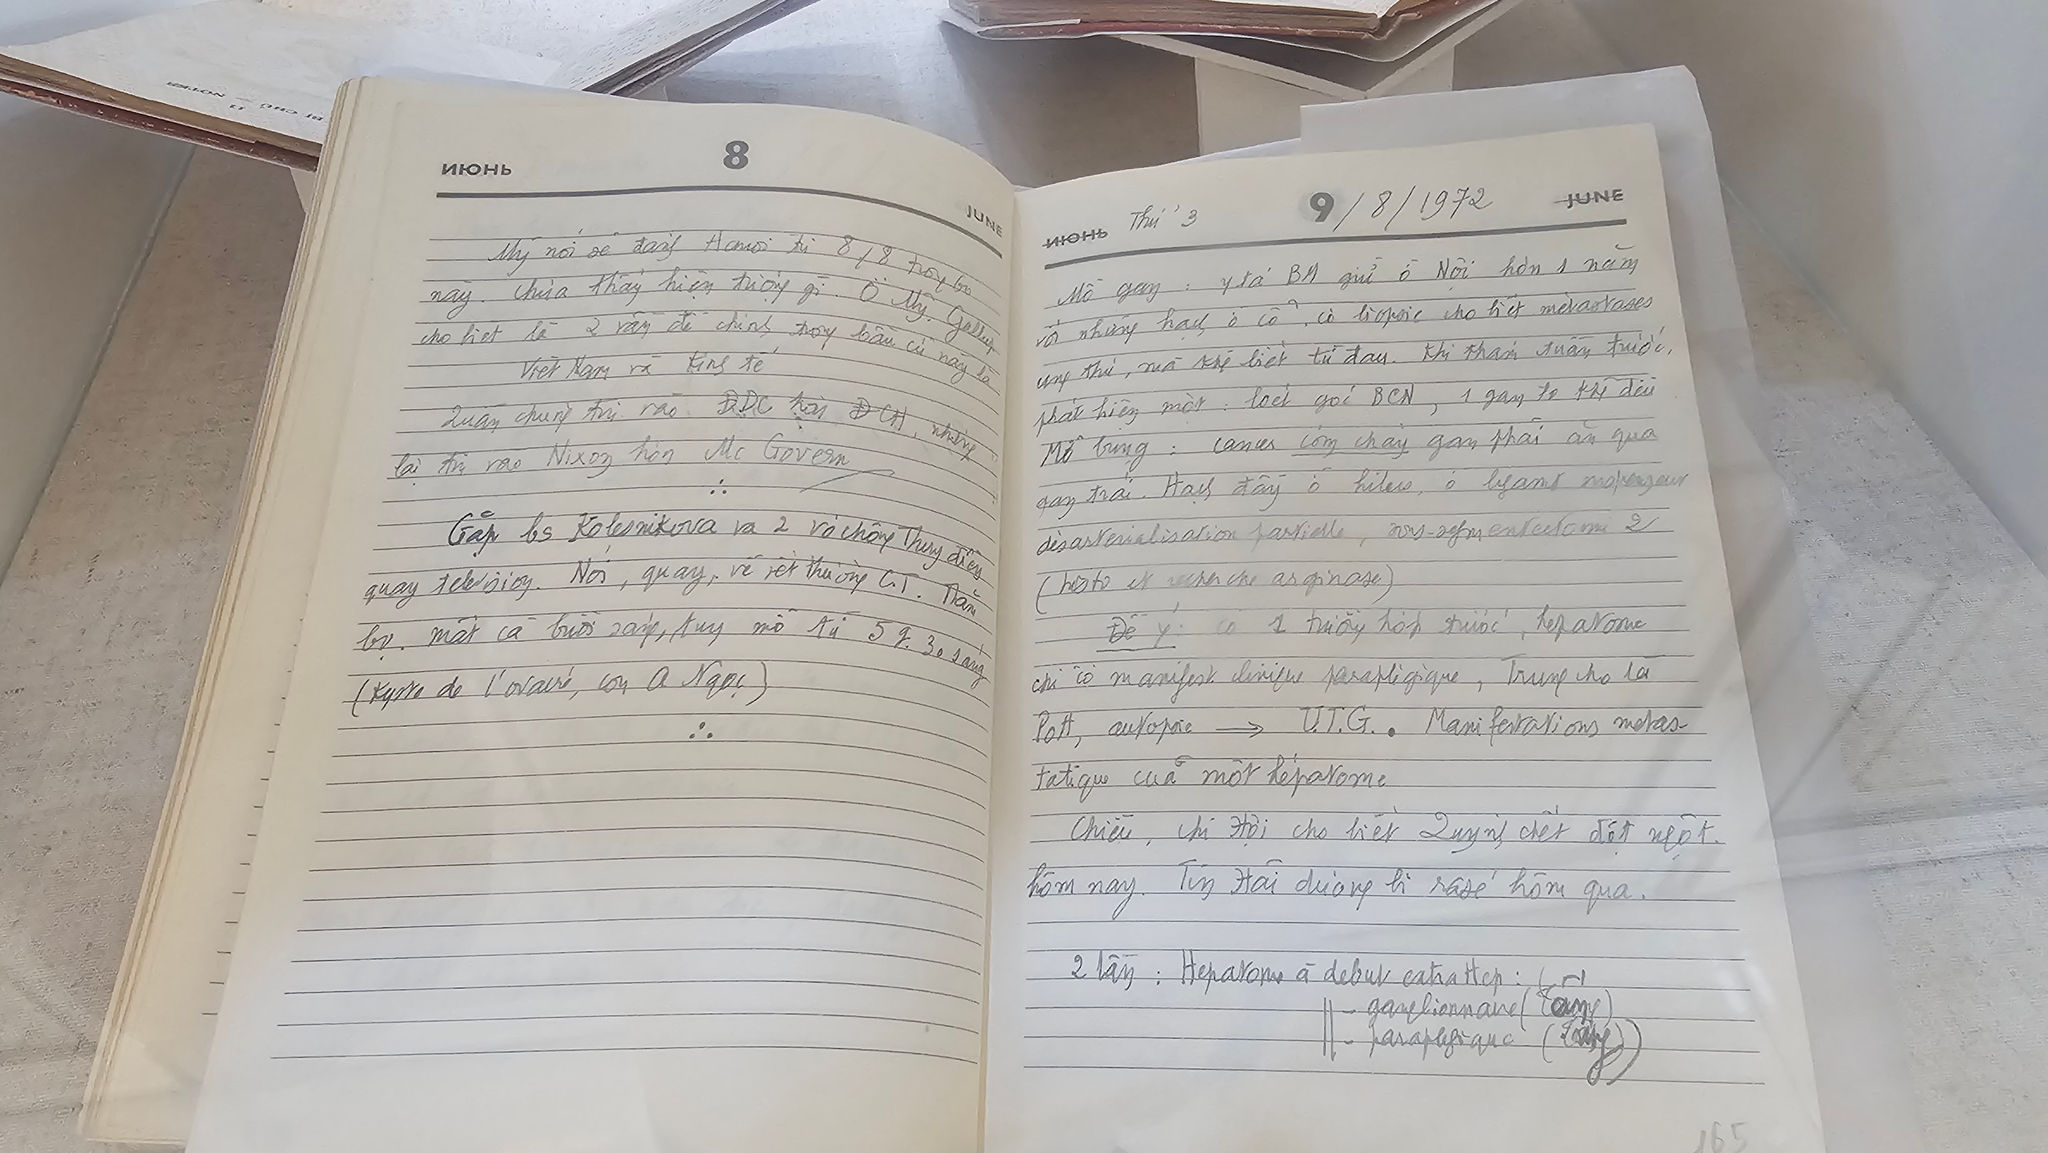 ИЮНЬ 8 JUNE
Mỹ nói sẽ đánh Hanoi từ 8/8 trong
này. Chưa thấy hiện tượng gì. Ở Mỹ, Gallup
cho biết là 2 vấn đề chính trong bầu cử này là
Việt Nam và kinh tế
Quần chúng tin vào ĐDC hơn ĐCH, nhưng
lại tin vào Nixon hơn Mc Govern
Gặp bs Kolesnikova và 2 vợ chồng Thụy điển
quay television. Nói, quay, về vết thương C.T. Toàn
bộ. mất cả buổi sáng, tuy mổ từ 5g.30 sáng
(Kyste de l'ovaire, con A Ngọc)
ИЮНЬ Thứ 3 9/8/1972 JUNE
Mổ gan: y tá BM gửi ở Nội hơn 1 năm
với những hạch ở cổ, có biopsie cho biết métastases
ung thư, mà khg biết từ đâu. Khi thăm tuần trước,
phát hiện một: loét gốc BCN, 1 gan to khg đều
Mổ bụng: cancer còm chảy gan phải ăn qua
gan trái. Hạch đầy ở hilus, ở ligament
désarterialisation partielle, sous-segmentectomie 2
(histo et recherche arginase)
Để ý: có 1 trường hợp trước, hepatome
chỉ có manifest clinique paraplégique, Trung cho là
Pott, autopsie → U.T.G. Manifestations métas-
tatique của một hépatome
Chiều, chị Hội cho biết Quỳnh chết đột ngột
hôm nay. Tin Hải dương bị rasé hôm qua.
2 lần: Hepatome à debut extra Hep:
- ganglionnaire
- paraplégique
165